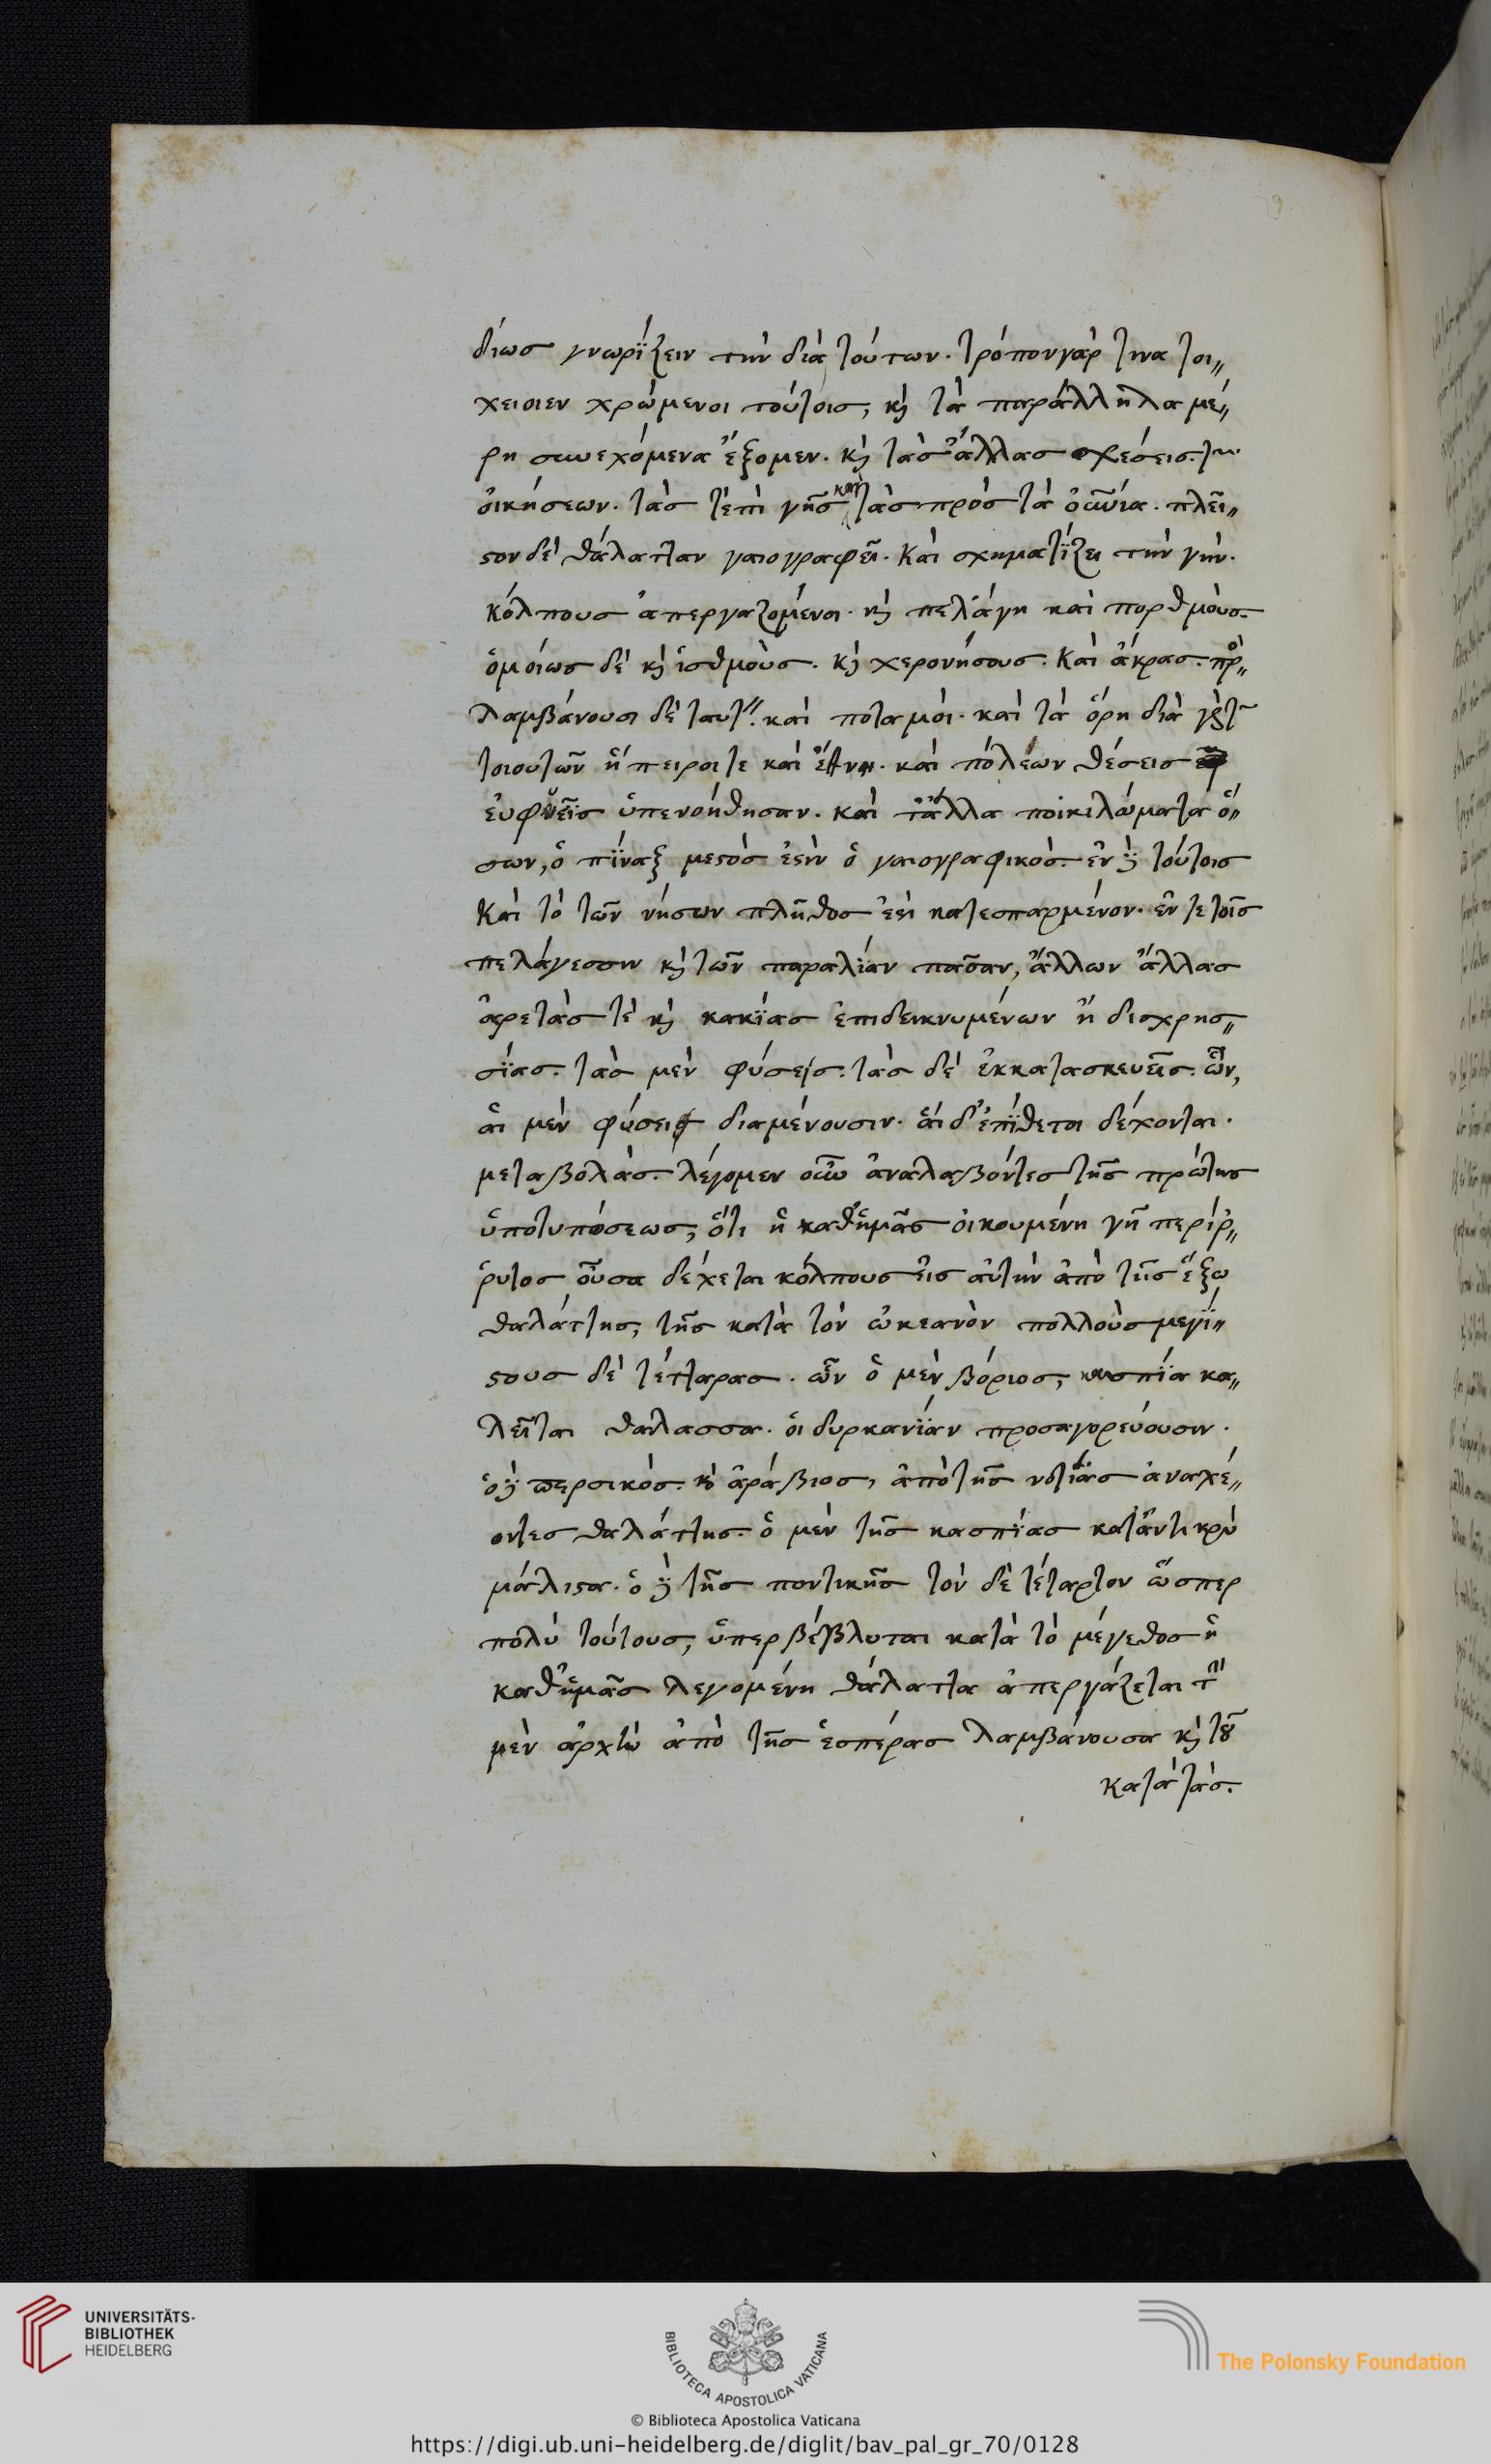 δίωσ γνωρΐζειν τὴν διὰ τούτων. τρόπον γάρ τινα τοι〃
χειοιεν χρώμενοι τούτοισ, κὴ τὰ παράλληλα μέ〃
ρη συνεχόμενα ἕξομεν. κὴ τὰσ ἄλλασ σχέσεισ. τῶν
ὀικήσεων. τὰσ τ' ἐπὶ γῆσ καὶ τὰσ πρὸσ τὰ ὀυράνια. πλεῖ〃
ϛον δὲ θάλαττα γαιογραφεῖ. καὶ σχηματΐζει τὴν γὴν.
κόλπουσ ἀπεργαζομένα. κὴ πελάγη καὶ πορθμὸυσ.
ὁμοίωσ δὲ κὴ ἰσθμοὺσ. κὴ χερονήσουσ. καὶ ἄκρασ. προσ〃
λαμβάνουσι δὲ ταύτῃ. καὶ ποταμόι. καὶ τὰ ὄρη διὰ γὰρ τῶν
τοιουτῶν ἤπειροι τε καὶ ἔθνη. καὶ πόλέων θέσεισ
ἐυφυεῖσ ὑπενοήθησαν. καὶ τἄλλα ποικιλώματα ὅ〃
σων, ὁ πΐναξ μεϛόσ ἐϛὶν ὁ γαιογραφικόσ. ἐν δὲ τούτοισ
καὶ τὸ τῶν νήσων πλῆθοσ ἐϛι κατεσπαρμένον. ἔν τε τοῖσ
πελάγεσσιν κὴ τῶν παραλΐαν πᾶσαν, ἄλλων ἄλλασ
ἀρετάσ τὲ κὴ κακΐασ ἐπιδεικνυμένων ἢ δισχρησ〃
σΐασ. τὰσ μὲν φύσεισ. τὰσ δὲ ἐκκατασκευεῖσ. ὧν,
ἁι μὲν φύσει διαμένουσιν. ἁι δ' ἐπΐθεται δέχονται.
μεταβολάσ. λέγομεν οὖν ἀναλαβόντεσ τῆσ πρώτησ
ὑποτυπόσεωσ, ὅτι ἡ καθἡμᾶσ ὀικουμένη γῆ περίῤ〃
ῥυτοσ οὖσα δέχεται κόλπουσ ἐισ ἀυτὴν ἀπὸ τῆσ ἔξω
θαλάττησ, τῆσ κατὰ τὸν ὠκεανὸν πολλοὺσ μεγΐ〃
ϛουσ δὲ τέτταρασ. ὧν ὁ μὲν βόριοσ, κασπΐα κα〃
λεῖται θάλασσα. ὁι δυρκανΐαν προσαγορεύουσιν.
ὁ δὲ περσικόσ. κὁ ἀράβιοσ, ἀπὸ τῆσ νοτΐασ ἀναχέ〃
οντεσ θαλάττησ. ὁ μὲν τῆσ κασπΐασ κατἀντικρὺ
μάλιϛα. ὁ δὲ τῆσ ποντικῆσ τὸν δὲ τέταρτον ὥσπερ
πολὺ τούτουσ, ὑπερβέβλυται κατὰ τὸ μέγεθοσ ἡ
καθἡμᾶσ λεγομένη θάλαττα ἀπεργάζεται τὴν
μὲν ἀρχὴν ἀπὸ τῆσ ἑσπέρασ λαμβάνουσα κὴ τοῦ
κατὰ τὰσ.
UNIVERSITÄTS-
BIBLIOTHEK
HEIDELBERG
BIBLIOTECA APOSTOLICA VATICANA
The Polonsky Foundation
© Biblioteca Apostolica Vaticana
https://digi.ub.uni-heidelberg.de/diglit/bav_pal_gr_70/0128